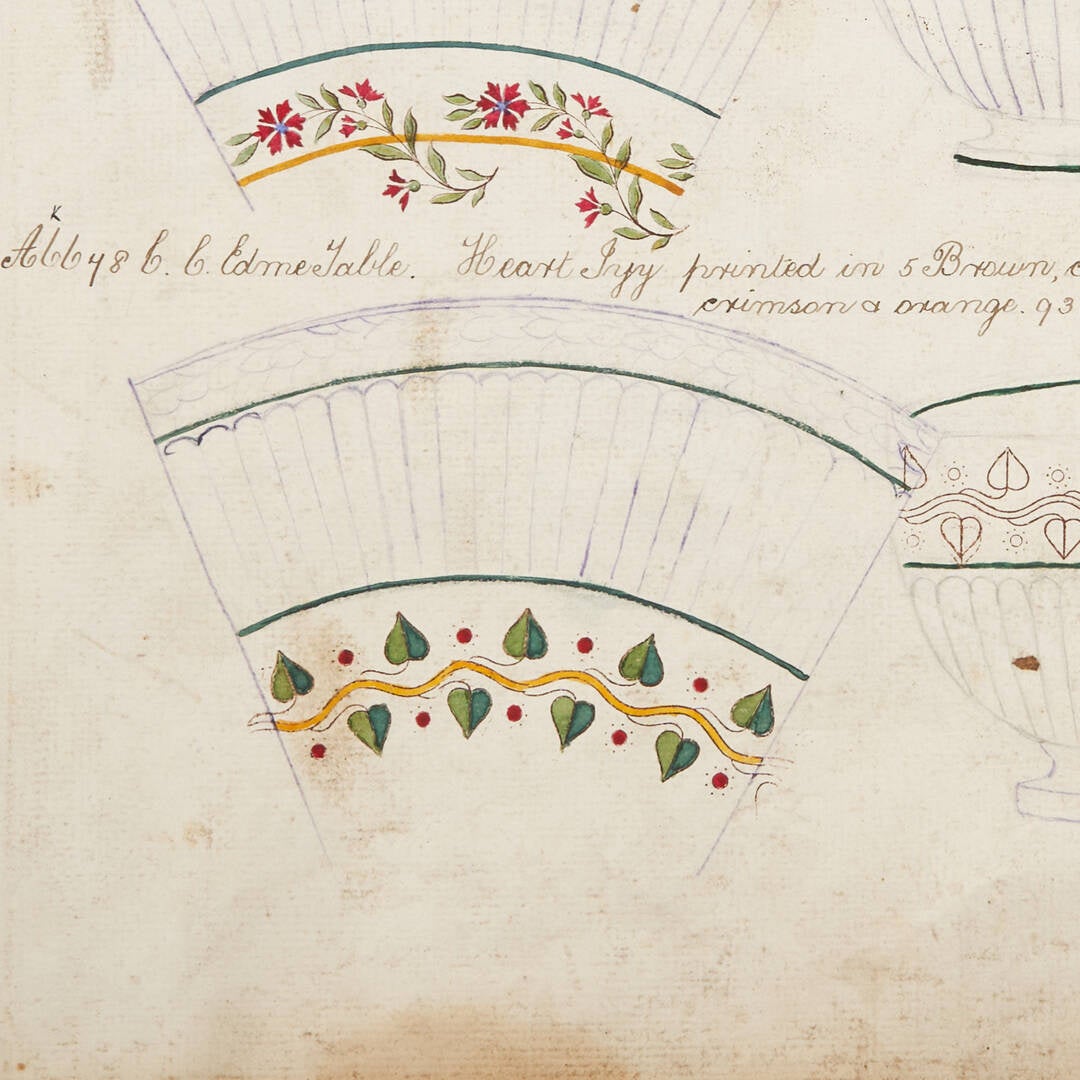 K
C. C. Edme Table. Heart Ivy printed in 5 Brown, c
crimson & orange. 93